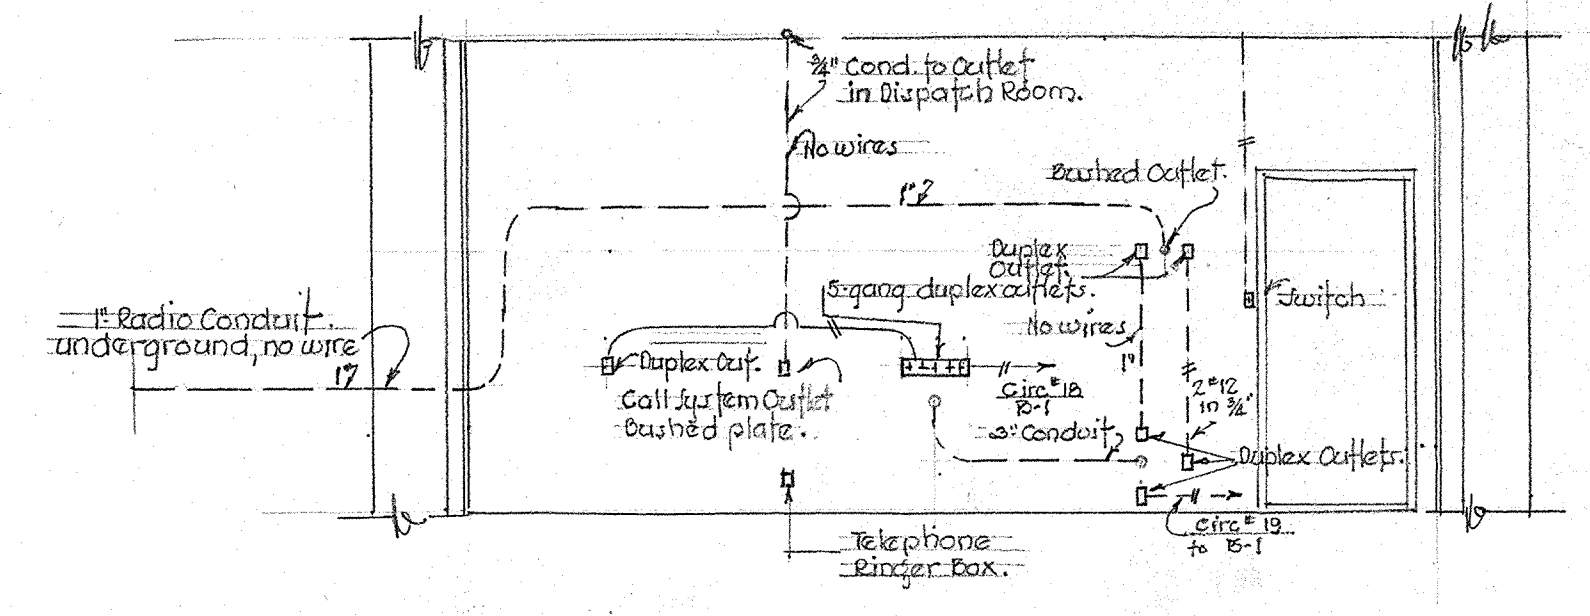 3/4" Cond. to Outlet
in Dispatch Room.
No wires
Bushed Outlet.
1"
Duplex
Outlet.
5-gang duplex outlets.
1" Radio Conduit.
underground, no wire
1"
No wires
1"
Switch
Duplex Out.
Call System Outlet
Bushed plate.
Circ #18
B-1
2 #12
in 3/4"
3" Conduit
Duplex Outlets.
Circ # 19
to B-1
Telephone
Ringer Box.